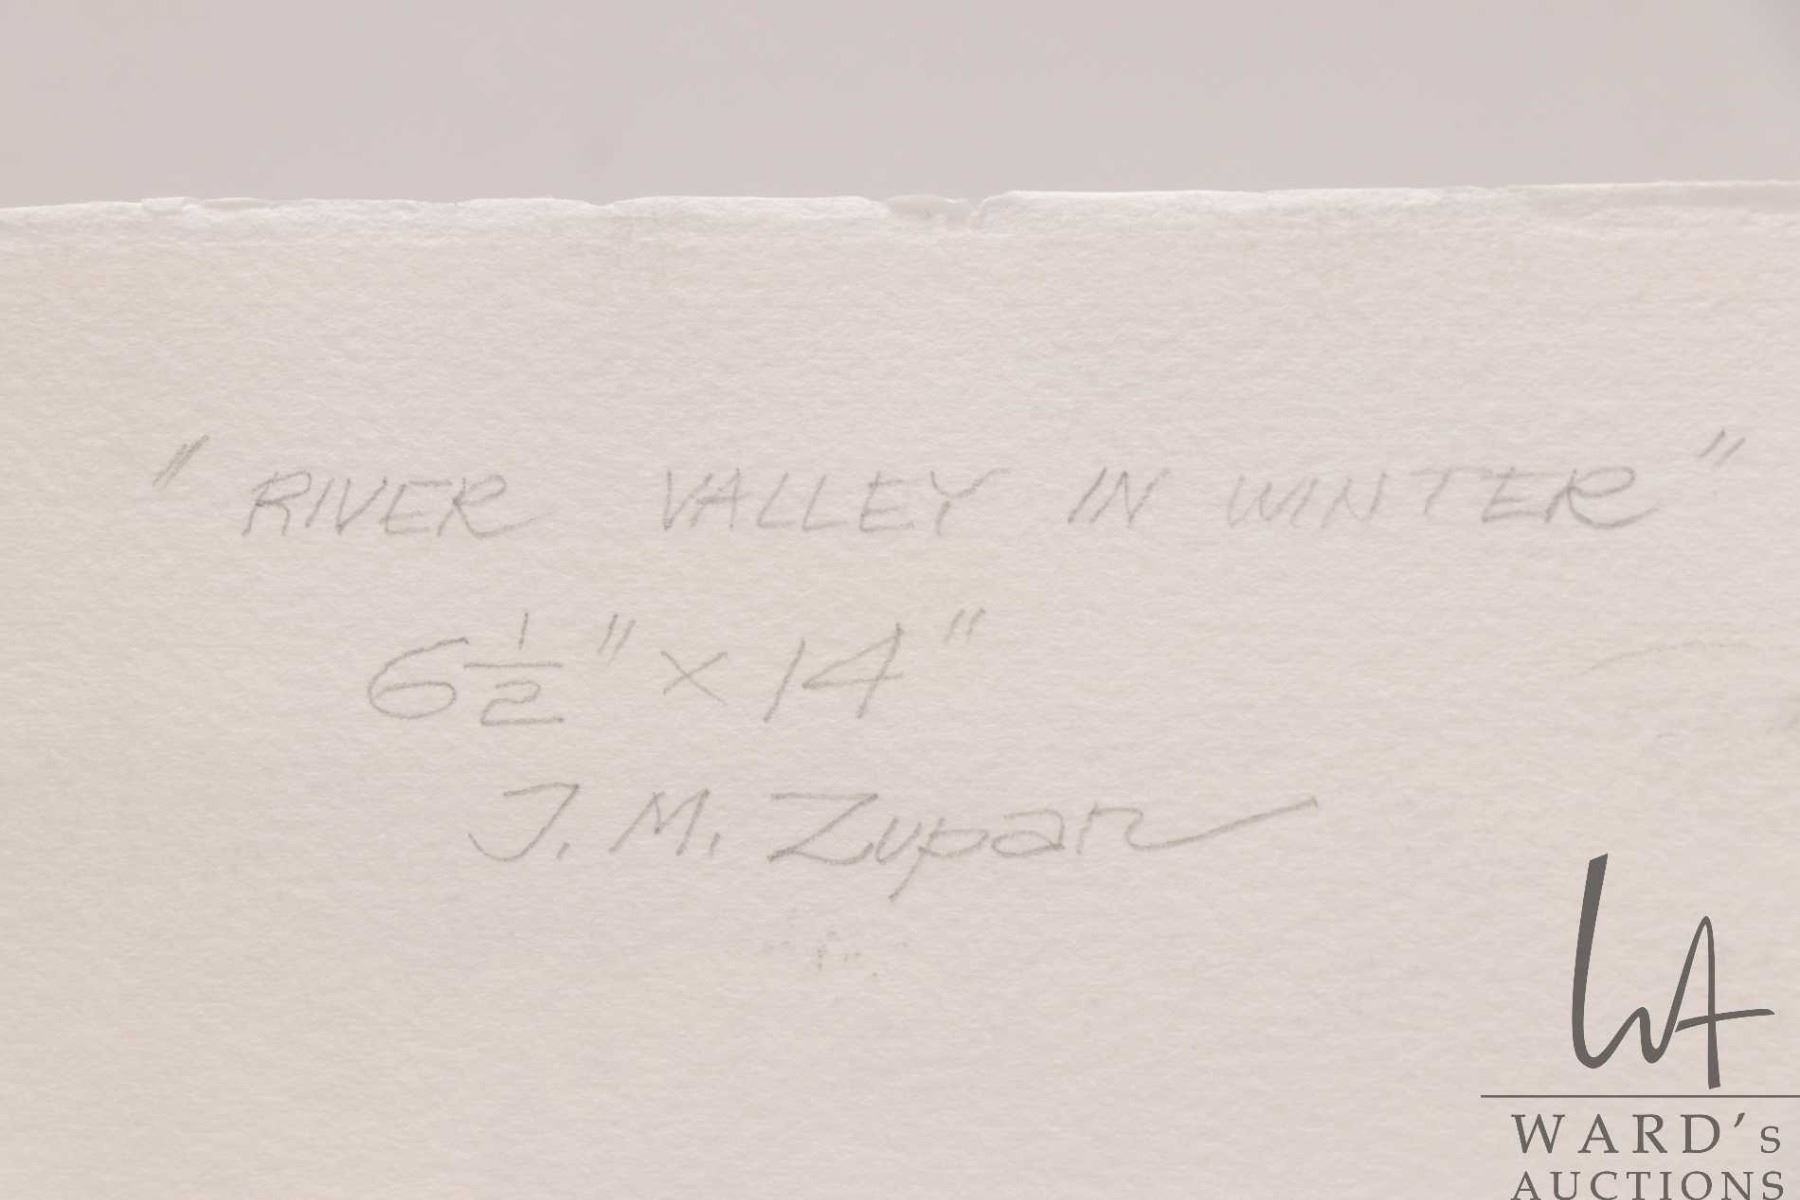 " RIVER VALLEY IN WINTER "
6 1/2" x 14"
J. M. Zupan
WA
WARD's
AUCTIONS